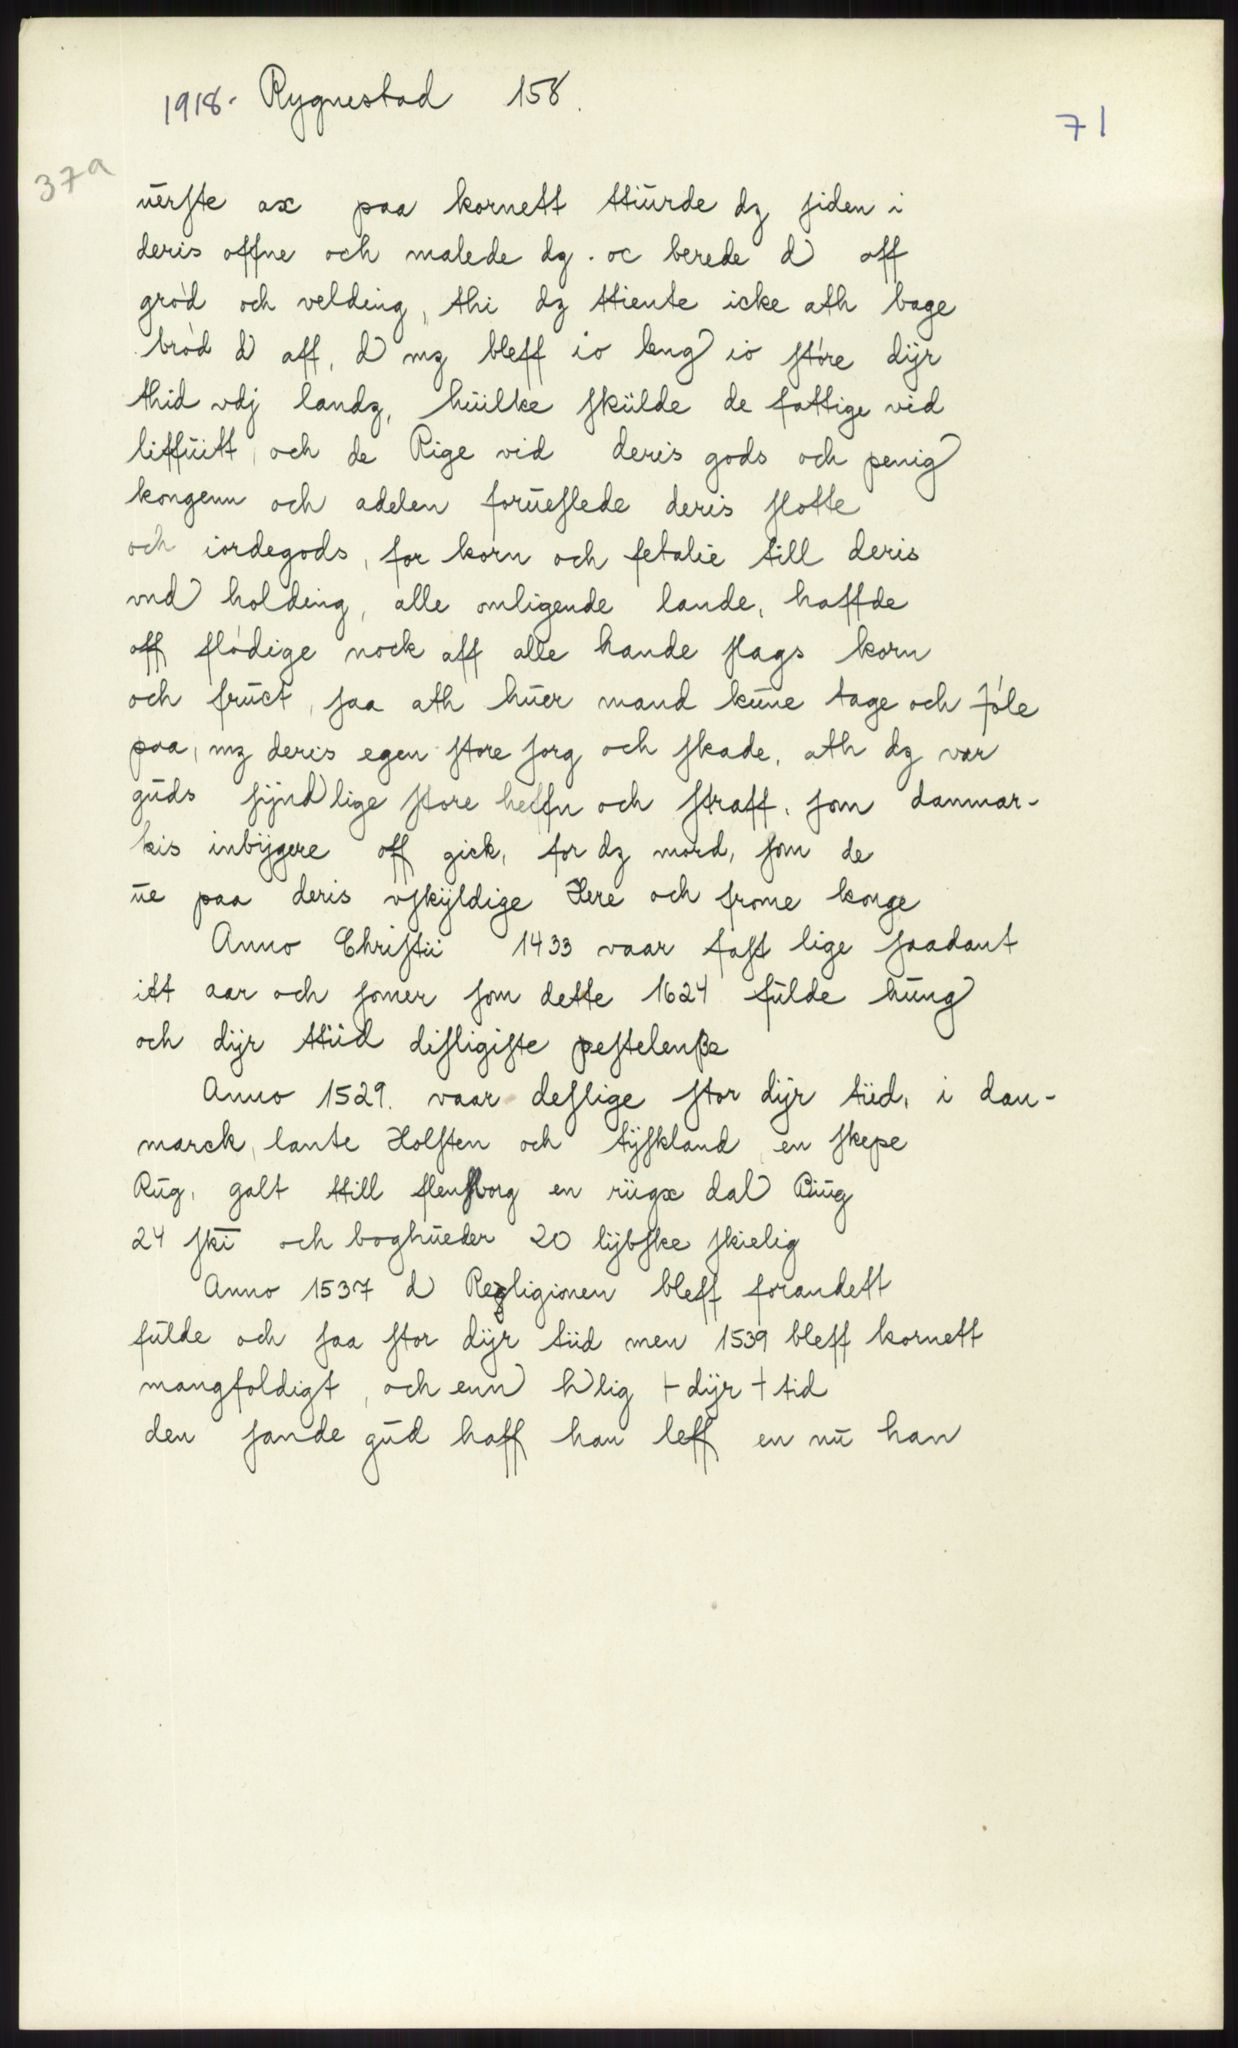 1918. Rygnestad 158.
71
37a
uerste ax paa kornett ttiurde dz siden i
deris offne och malede dz. oc berede d aff
grød och velding, thi dz ttiente icke ath bage
brød d aff, d mz bleff io leng io støre dÿr
thid vdj landz, huilke skulde de fattige vid
liffuitt, och de Rige vid deris gods och penig
kongenn och adelen forueslede deris slotte
och iordegods, for korn och fetalie till deris
vnd holding, alle omligende lande, haffde
off flødige nock aff alle hande slags korn
och fruct, saa ath huer mand kune tage och føle
paa, mz deris egen store sorg och skade, ath dz var
guds sÿndlige store heffn och straff, som danmar-
kis inbÿgere off gick, for dz mord, som de
ue paa deris vskÿldige Here och frome konge
Anno Christii 1433 vaar fast lige saadant
itt aar och somer som dette 1624 fulde hung
och dÿr ttiid disligiste pestelenße
Anno 1529. vaar deslige stor dÿr tiid, i dan-
marck, lante Holsten och tÿskland, en skepe
Rug, galt ttill flensborg en rügx dal Biug
24 ski och boghueder 20 lÿbske skielig
Anno 1537 d Religionen bleff forandett
fulde och saa stor dÿr tiid men 1539 bleff kornett
mangfoldigt, och enn h lig + dÿr + tid
den sande gud haff han leff en nu han